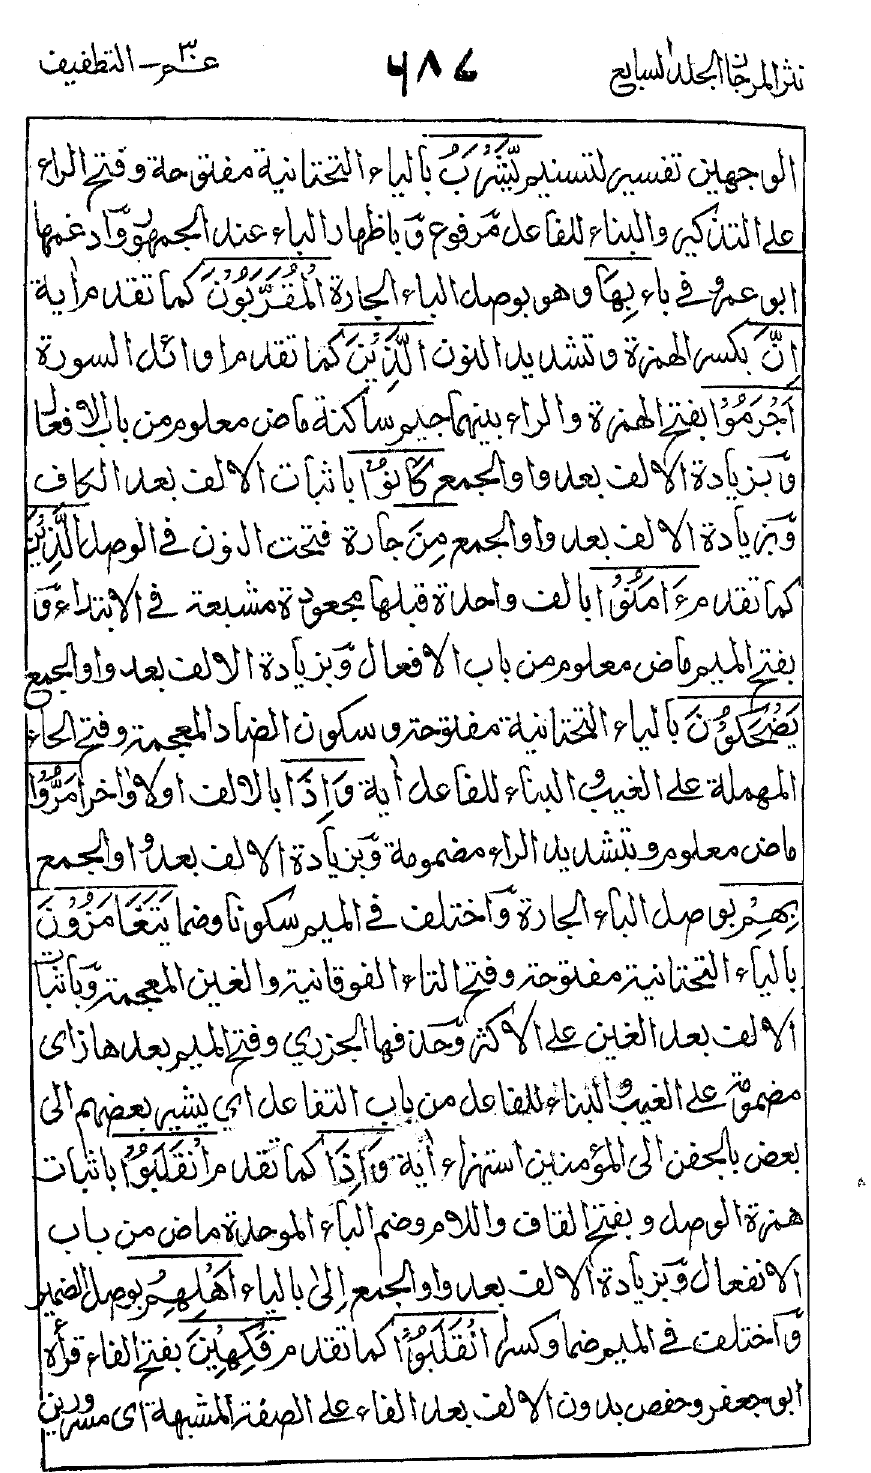 نثر المرجان المجلد السابع
٦٨٧
عم ٣٠ – التطفيف
الوجهين تفسير لتسنيم يَّشْرَبُ بالياء التحتانية مفتوحة وفتح الراء
على التذكير والبناء للفاعل مرفوع وباظهار الباء عند الجمهور وادغمها
ابو عمرو في باء بِهَا وهو بوصل الباء الجارة الْمُقَرَّبُوْنَ كما تقدم اية
اِنَّ بكسر الهمزة وتشديد النون الَّذِيْنَ كما تقدم اوائل السورة
اَجْرَمُوْا بفتح الهمزة والراء بينهما جيم ساكنة ماض معلوم من باب الافعال
وبزيادة الالف بعد واو الجمع كَانُوْا باثبات الالف بعد الكاف
وبزيادة الالف بعد واو الجمع مِنَ جارة فتحت النون في الوصل الَّذِيْنَ
كما تقدم ءَامَنُوْا بالف واحدة قبلها مجعودة مشبعة في الابتداء و
بفتح الميم ماض معلوم من باب الافعال وبزيادة الالف بعد واو الجمع
يَضْحَكُوْنَ بالياء التحتانية مفتوحة وسكون الضاد المعجمة وفتح الحاء
المهملة على الغيب والبناء للفاعل اية وَاِذَا بالالف اولا واخرا مَرُّوْا
ماض معلوم وبتشديد الراء مضمومة وبزيادة الالف بعد واو الجمع
بِهِمْ بوصل الباء الجارة واختلف في الميم سكونا وضما يَتَغَامَزُوْنَ
بالياء التحتانية مفتوحة وفتح التاء الفوقانية والغين المعجمة وباثبات
الالف بعد الغين على الاكثر وحذفها الجزري وفتح الميم بعدها زاى
مضمومة على الغيب والبناء للفاعل من باب التفاعل اي يشير بعضهم الى
بعض بالجفن الى المؤمنين استهزاء اية وَاِذَا كما تقدم انْقَلَبُوْا باثبات
همزة الوصل وبفتح القاف واللام وضم الباء الموحدة ماض من باب
الانفعال وبزيادة الالف بعد واو الجمع اِلٰى بالياء اَهْلِهِمْ بوصل الضمير
واختلف في الميم ضما وكسرا انْقَلَبُوْا كما تقدم فَكِهِيْنَ بفتح الفاء قرأه
ابو جعفر وحفص بدون الالف بعد الفاء على الصفة المشبهة اى مسرورين